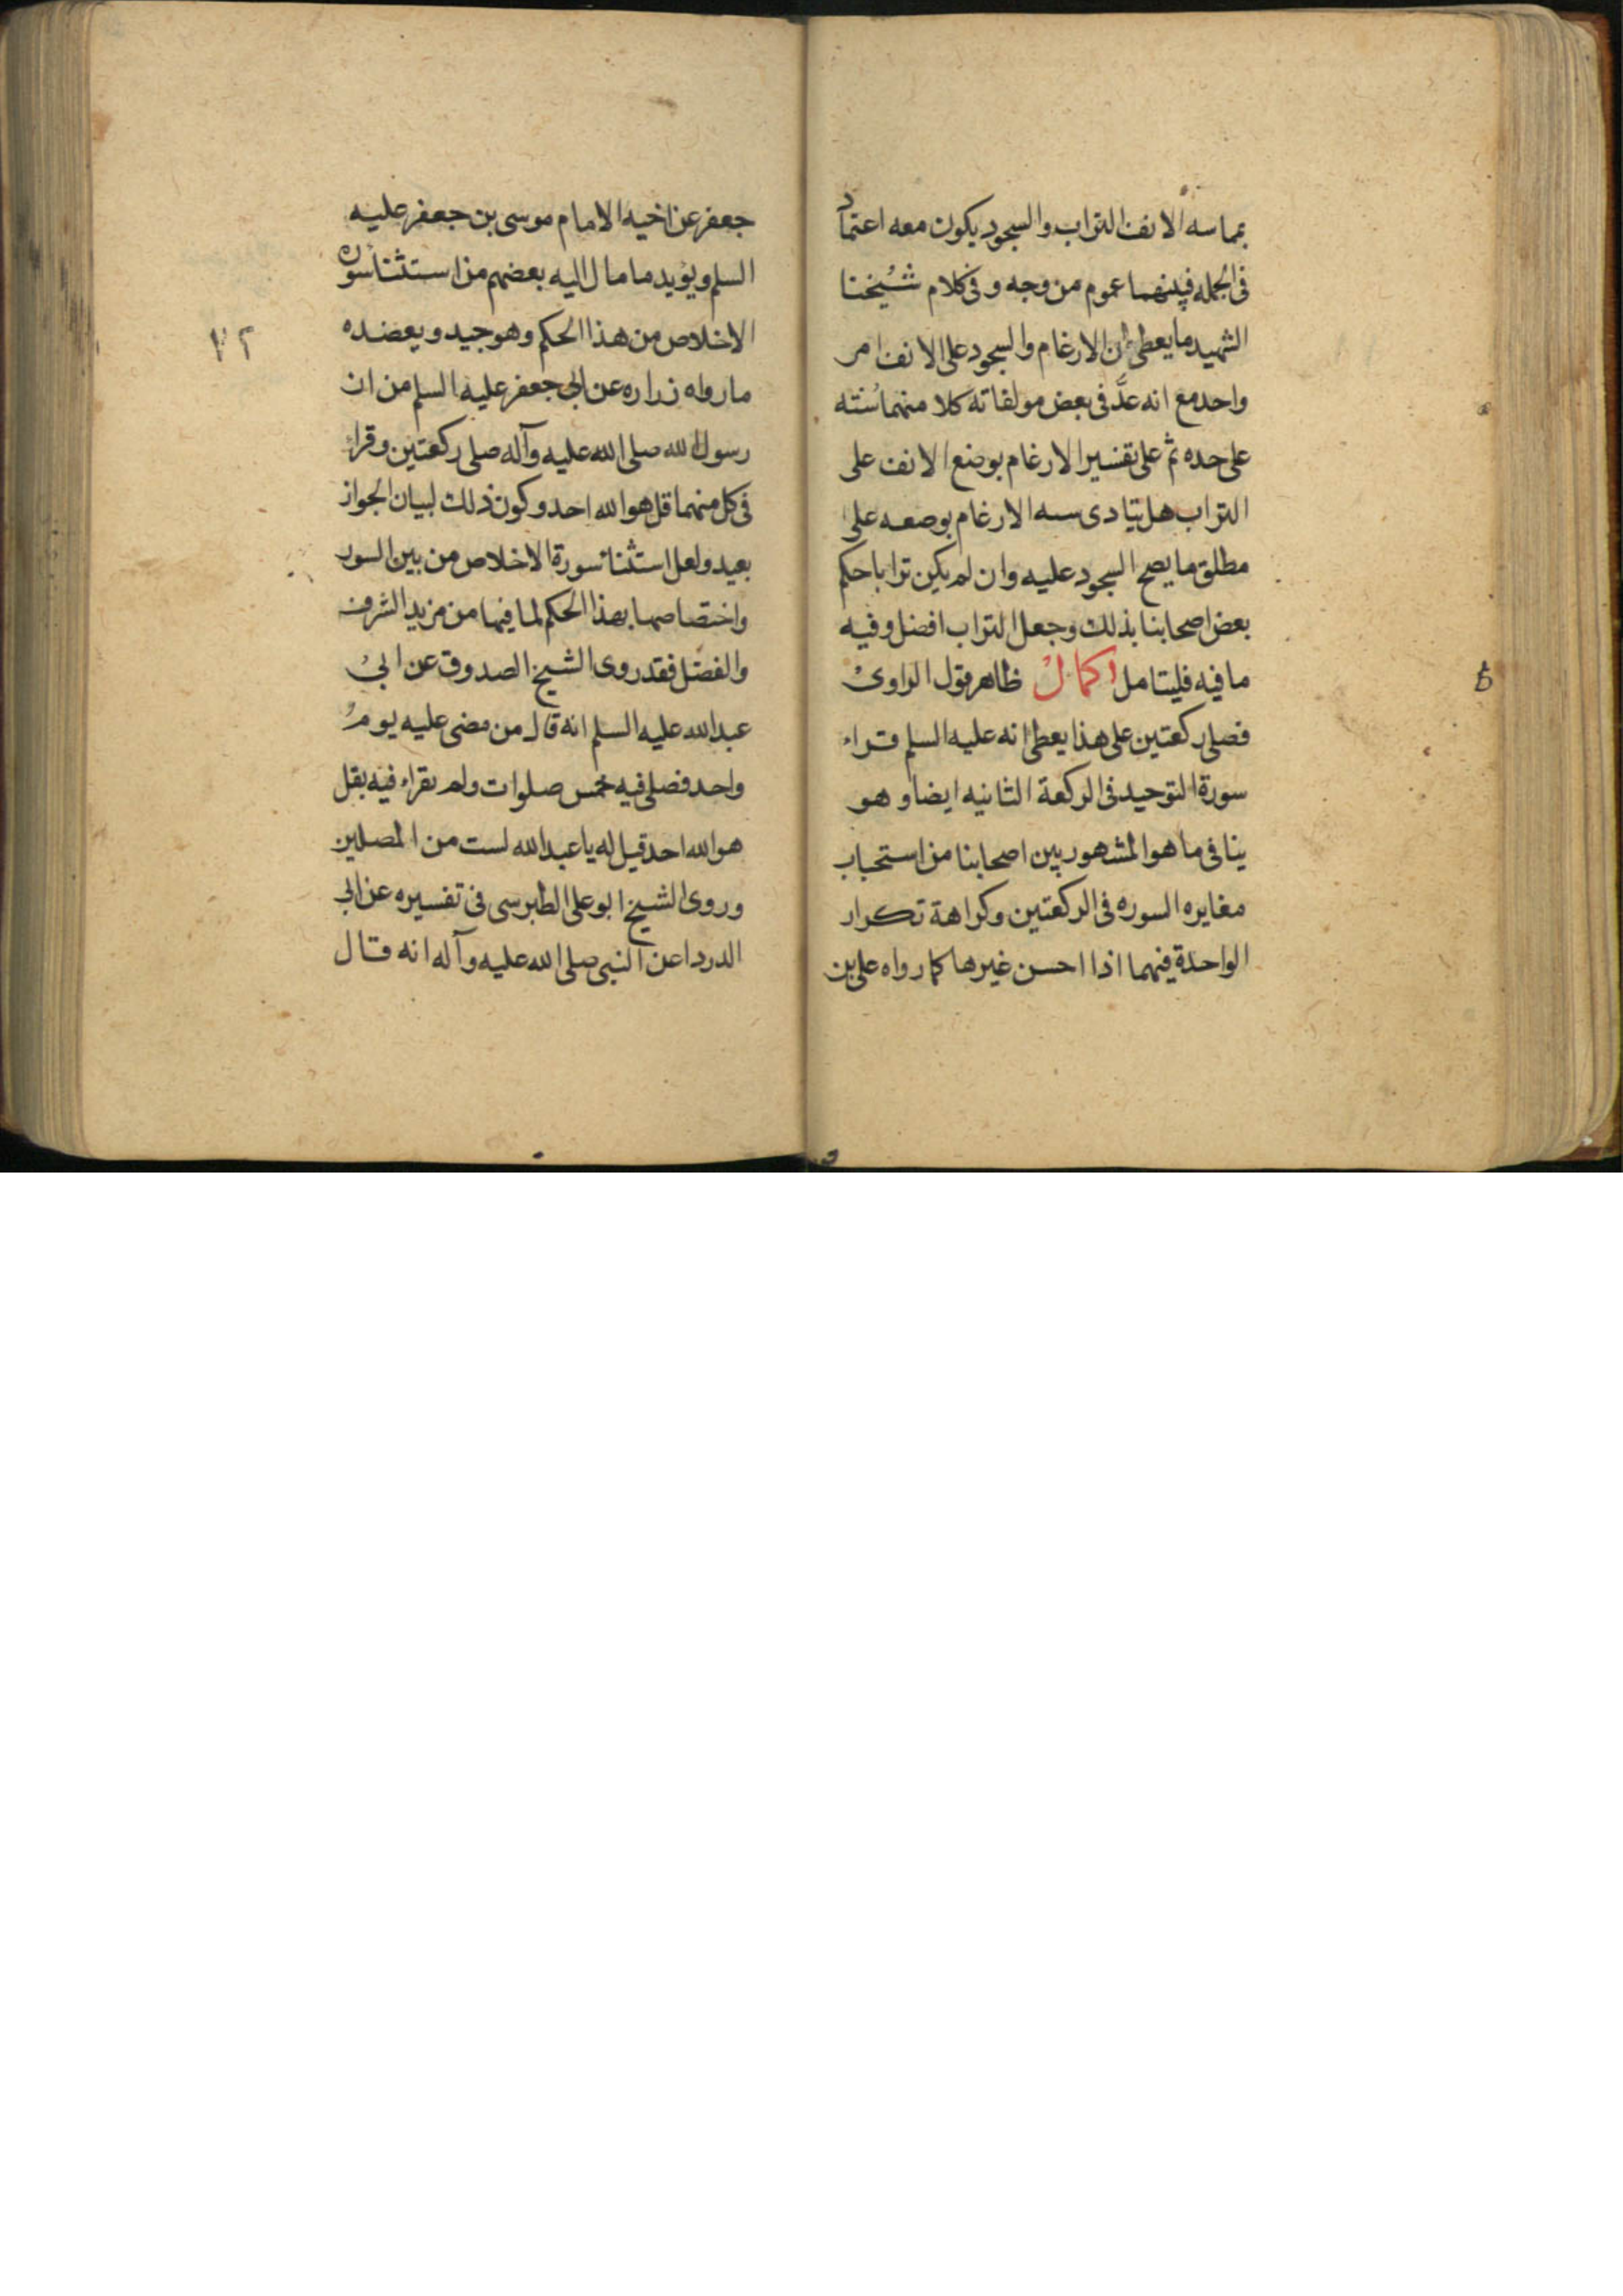 بماسه الانف التراب والسجود يكون معه اعتماد
فى الجمله فبينهما عموم من وجه وفى كلام شيخنا
الشهيد ما يعطى ان الارغام والسجود على الانف امر
واحد مع انه عدّ فى بعض مولفاته كلا منهما سنته
على حده ثم على تفسير الارغام بوضع الانف على
التراب هل يتادى سىه الارغام بوصعه على
مطلق ما يصح السجود عليه وان لم يكن ترابا حكم
بعض اصحابنا بذلك وجعل التراب افضل وفيه
ما فيه فليتامل اكمال ظاهر قول الراوى
فصلى ركعتين على هذا يعطى انه عليه السلم قراء
سورة التوحيد فى الركعة الثانيه ايضا وهو
ينافى ما هو المشهور بين اصحابنا من استحباب
مغايره السوره فى الركعتين وكراهة تكرار
الواحدة فيهما اذا احسن غيرها كما رواه على بن
جعفر عن اخيه الامام موسى بن جعفر عليه
السلم ويؤيد ما مال اليه بعضهم من استثنا سوره
الاخلاص من هذا الحكم وهو جيد ويعضده
ما رواه زراره عن ابى جعفر عليه السلم من ان
رسول الله صلى الله عليه وآله صلى ركعتين وقراء
فى كل منهما قل هو الله احد وكون ذلك لبيان الجواز
بعيد ولعل استثنا سورة الاخلاص من بين السور
واختصاصها بهذا الحكم لما فيها من مزيد الشرف
والفضل فقد روى الشيخ الصدوق عن ابى
عبد الله عليه السلم انه قال من مضى عليه يوم
واحد فصلى فيه خمس صلوات ولم يقراء فيه بقل
هو الله احد قيل له يا عبد الله لست من المصلين
وروى الشيخ ابو على الطبرسى فى تفسيره عن ابى
الدردا عن النبى صلى الله عليه وآله انه قال